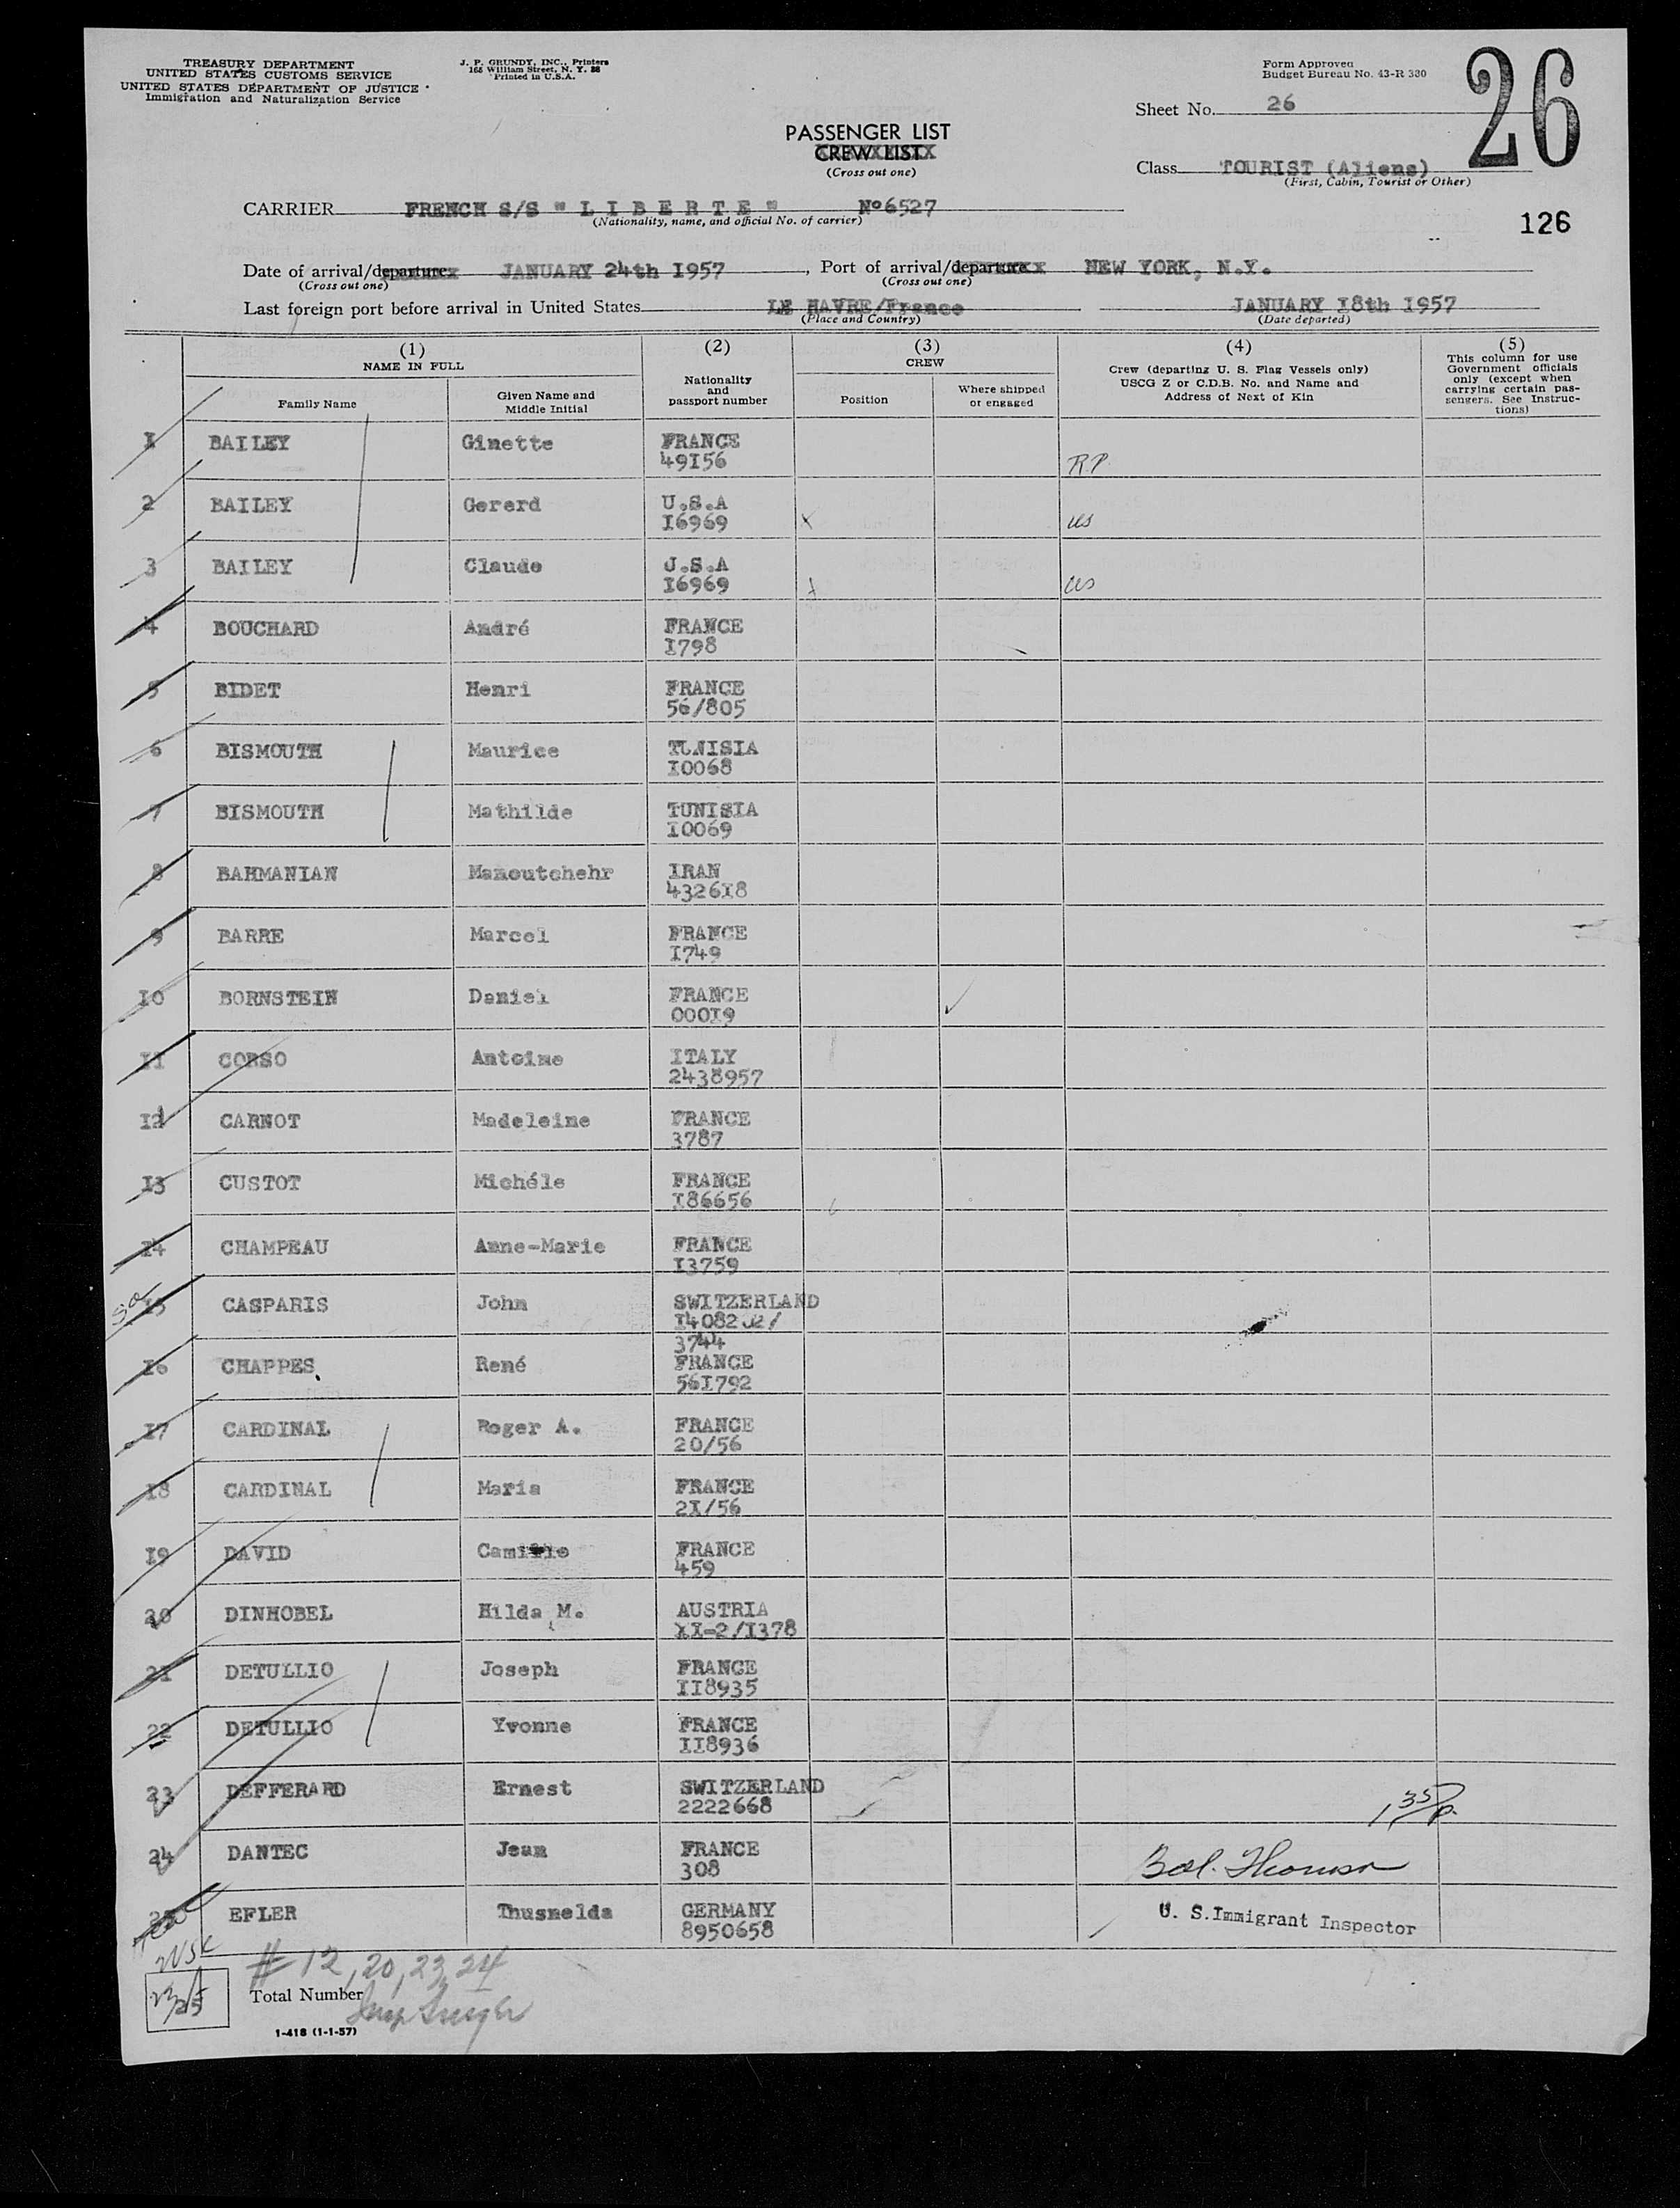 TREASURY DEPARTMENT
UNITED STATES CUSTOMS SERVICE
UNITED STATES DEPARTMENT OF JUSTICE
Immigration and Naturalization Service
J. P. GRUNDY, INC., Printers
165 William Street, N. Y. 38
Printed in U.S.A.
Form Approved
Budget Bureau No. 43-R 380
26
Sheet No. 26
PASSENGER LIST
CREW LIST
(Cross out one)
Class TOURIST (Aliens)
(First, Cabin, Tourist or Other)
CARRIER FRENCH S/S " L I B E R T E " No 6527
(Nationality, name, and official No. of carrier)
126
Date of arrival/departure JANUARY 24th 1957, Port of arrival/departure NEW YORK, N.Y.
(Cross out one) (Cross out one)
Last foreign port before arrival in United States LE HAVRE/France JANUARY 18th 1957
(Place and Country) (Date departed)
(1) NAME IN FULL
Family Name
Given Name and Middle Initial
(2) Nationality and passport number
(3) CREW
Position
Where shipped or engaged
(4) Crew (departing U. S. Flag Vessels only)
USCG Z or C.D.B. No. and Name and
Address of Next of Kin
(5) This column for use
Government officials
only (except when
carrying certain pas-
sengers. See Instruc-
tions)
1 BAILEY Ginette FRANCE
49I56 RP
2 BAILEY Gererd U.S.A
I6969 X us
3 BAILEY Claude U.S.A
I6969 us
4 BOUCHARD André FRANCE
I798
5 BIDET Henri FRANCE
56/805
6 BISMOUTH Maurice TUNISIA
I0068
7 BISMOUTH Mathilde TUNISIA
I0069
8 BAHMANIAN Manoutchehr IRAN
4326I8
9 BARRE Marcel FRANCE
I749
I0 BORNSTEIN Daniel FRANCE
000I9 ✓
II CORSO Antoine ITALY
2438957
I2 CARNOT Madeleine FRANCE
3787
I3 CUSTOT Michéle FRANCE
I86656
I4 CHAMPEAU Anne-Marie FRANCE
I3759
I5 CASPARIS John SWITZERLAND
3744
I6 CHAPPES René FRANCE
56I792
I7 CARDINAL Roger A. FRANCE
20/56
I8 CARDINAL Maria FRANCE
2I/56
I9 DAVID FRANCE
459
20 DINHOBEL Hilda M. AUSTRIA
XX-2/I378
2I DETULLIO Joseph FRANCE
II8935
22 DETULLIO Yvonne FRANCE
II8936
23 DEFFERARD Ernest SWITZERLAND
2222668
1 35 p.
24 DANTEC Jean FRANCE
308
25 EFLER Thusnelda GERMANY
8950658
U. S. Immigrant Inspector
# 12, 20, 23, 24
Total Number
1-418 (1-1-57)